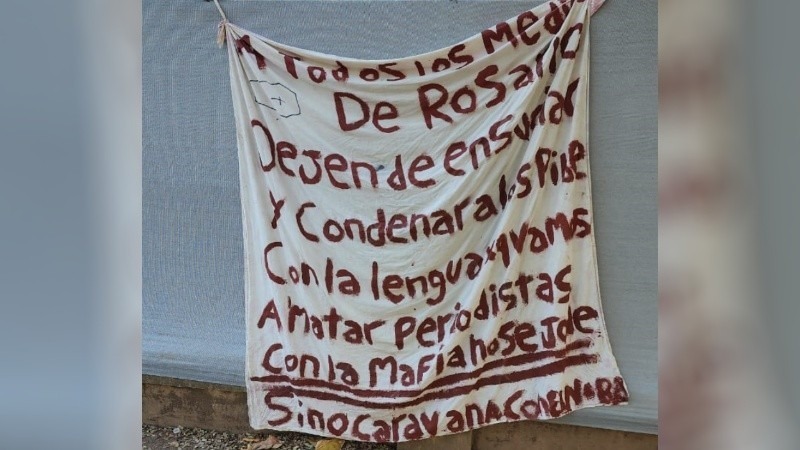 A Todos los Medi
De Rosario
Dejen de ensuciar
y Condenar a los Pibe
Con la lengua xq vamos
A Matar Periodistas
Con la Mafia no se Jode
Sino caravana con